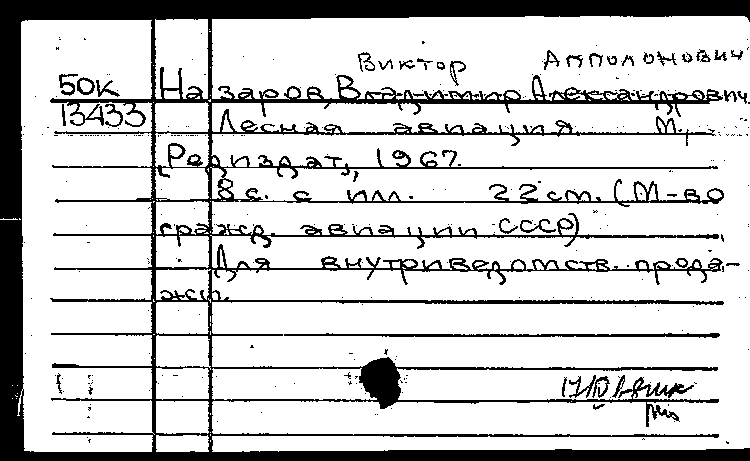 Виктор Апполонович
50К Назаров, Владимир Александрович
13433 Лесная авиация. М.,
[Редиздат], 1967.
8 с. с илл. 22 см. (М-во
гражд. авиации СССР)
Для внутриведомств. прода-
жи.